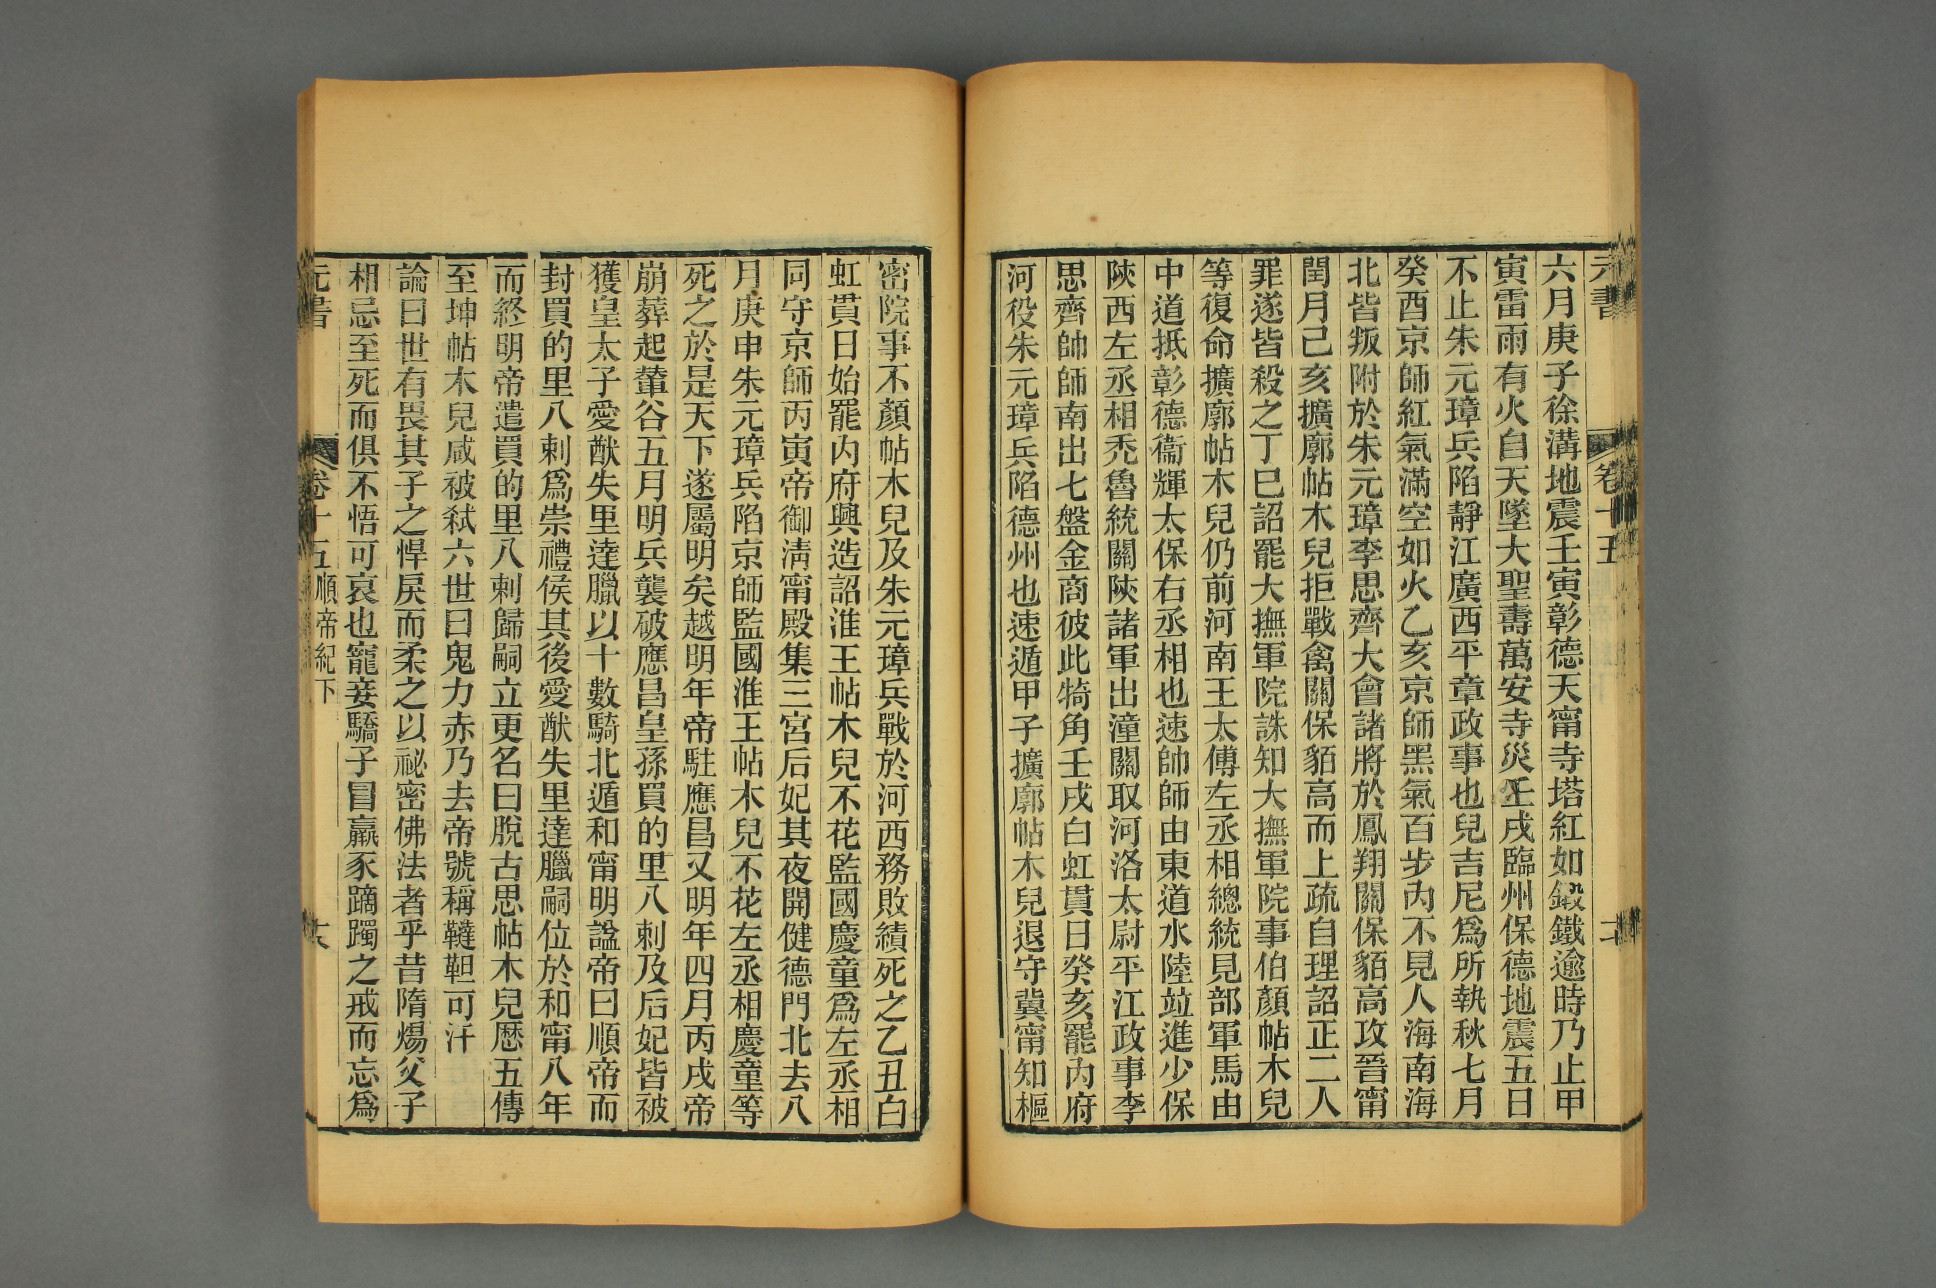 六月庚子徐溝地震壬寅彰德天甯寺塔紅如鍛鐵逾時乃止甲
寅雷雨有火自天墜大聖壽萬安寺災壬戌臨州保德地震五日
不止朱元璋兵陷靜江廣西平章政事也兒吉尼爲所執秋七月
癸酉京師紅氣滿空如火乙亥京師黑氣百步內不見人海南海
北皆叛附於朱元璋李思齊大會諸將於鳳翔關保貊高攻晉甯
閏月己亥擴廓帖木兒拒戰禽關保貊高而上疏自理詔正二人
罪遂皆殺之丁巳詔罷大撫軍院誅知大撫軍院事伯顏帖木兒
等復命擴廓帖木兒仍前河南王太傅左丞相總統見部軍馬由
中道抵彰德衞輝太保右丞相也速帥師由東道水陸竝進少保
陜西左丞相禿魯統關陜諸軍出潼關取河洛太尉平江政事李
思齊帥師南出七盤金商彼此犄角壬戌白虹貫日癸亥罷內府
河役朱元璋兵陷德州也速遁甲子擴廓帖木兒退守冀甯知樞
密院事不顏帖木兒及朱元璋兵戰於河西務敗績死之乙丑白
虹貫日始罷內府興造詔淮王帖木兒不花監國慶童爲左丞相
同守京師丙寅帝御淸甯殿集三宮后妃其夜開健德門北去八
月庚申朱元璋兵陷京師監國淮王帖木兒不花左丞相慶童等
死之於是天下遂屬明矣越明年帝駐應昌又明年四月丙戌帝
崩葬起輦谷五月明兵襲破應昌皇孫買的里八剌及后妃皆被
獲皇太子愛猷失里達臘以十數騎北遁和甯明諡帝曰順帝而
封買的里八剌爲崇禮侯其後愛猷失里達臘嗣位於和甯八年
而終明帝遣買的里八剌歸嗣立更名曰脫古思帖木兒歷五傳
至坤帖木兒咸被弒六世曰鬼力赤乃去帝號稱韃靼可汗
論曰世有畏其子之悍戾而柔之以祕密佛法者乎昔隋煬父子
相忌至死而俱不悟可哀也寵妾驕子冒羸豕蹢躅之戒而忘爲
元書
卷十五順帝紀下